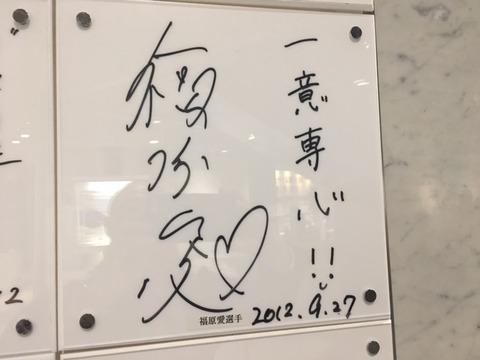 一意専心!!
福原愛♡
福原愛選手
2012.9.27
2